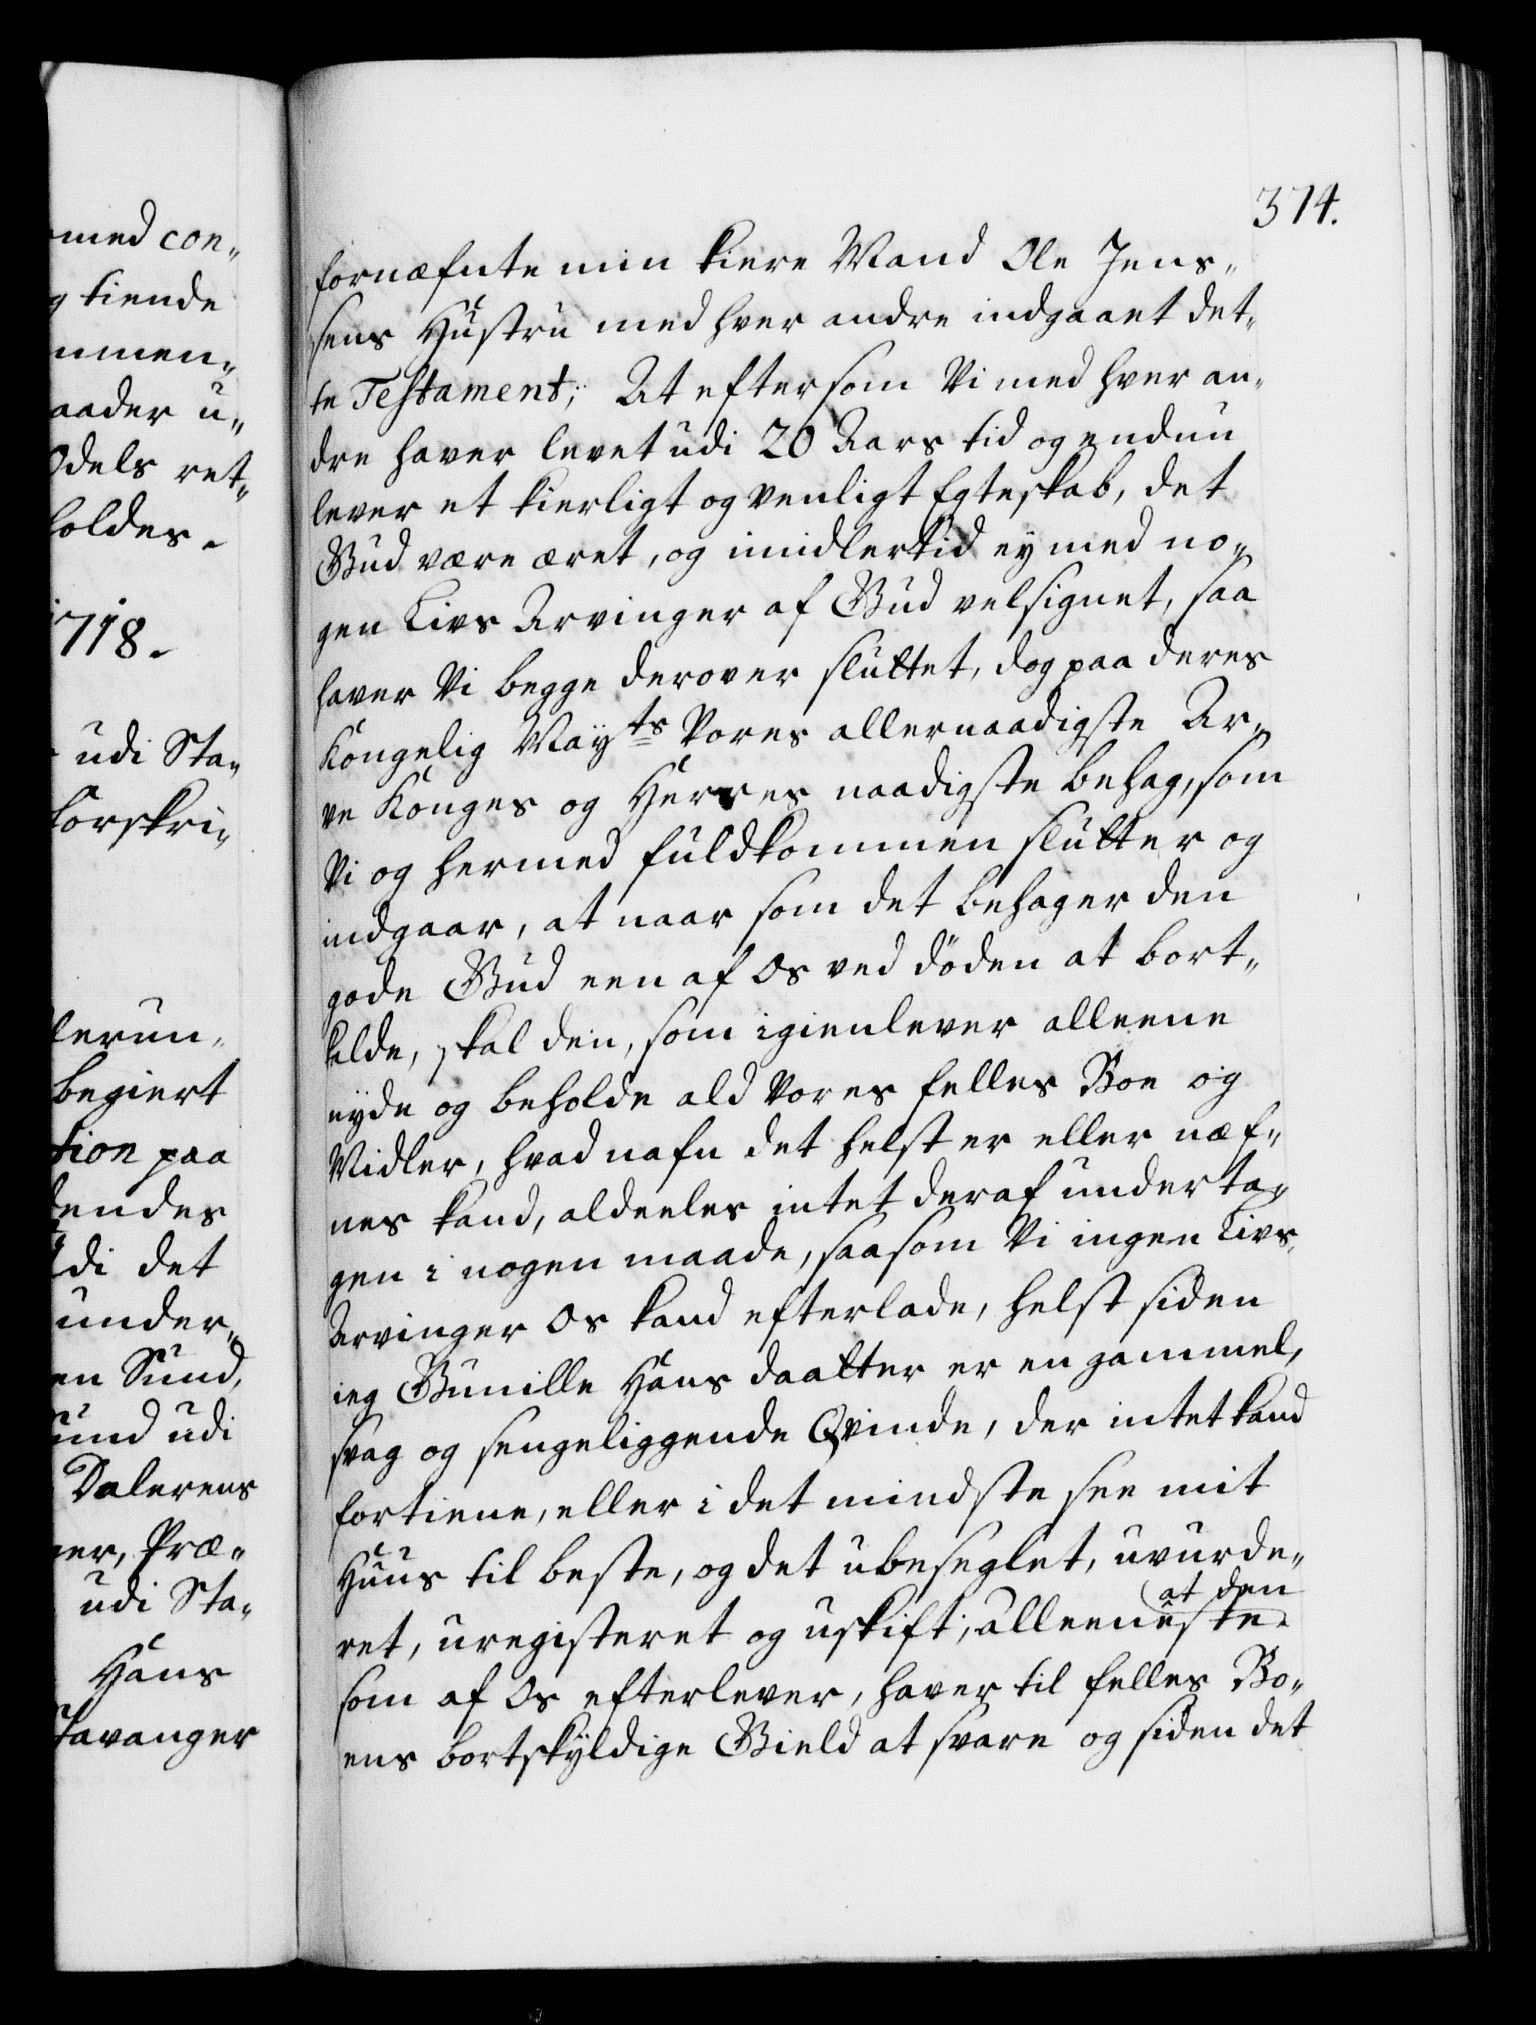 med con-
g tiende
mmen-
aader u-
Odels ret-
holdes.
1718.
udi Sta-
forskri-
lerun-
begiert
tion paa
dendes
Udi det
under-
en Sund,
Sund udi
Dalerens
ger, Præ-
udi Sta-
Hans
tavanger
374.
fornæfnte min kiere Mand Ole Jens-
sens Hustru med hver andre indgaaet det-
te Testament; At eftersom Vi med hver an-
dre haver levet udi 20 Aars tid og endnu
lever et kierligt og venligt Egteskab, det
Gud være æret, og imidlertid ey med no-
gen Livs Arvinger af Gud velsignet, saa
haver Vi begge derover sluttet, dog paa deres
Kongelig Mayts Vores allernaadigste Ar-
ve Konges og Herres naadigste behag, som
Vi og hermed fuldkommen slutter og
indgaar, at naar som det behager den
gode Gud een af Os ved döden at bort-
kalde, skal den, som igienlever alleene
nyde og beholde ald Vores felles Boe og
Midler, hvad nafn det helst er eller næf-
nes kand, aldeeles intet deraf underta-
gen i nogen maade, saasom Vi ingen Livs
Arvinger Os kand efterlade, helst siden
ieg Gunille Hans daatter er en gammel,
svag og sengeliggende Qvinde, der intet kand
fortiene, eller i det mindste see mit
Huus til beste, og det ubeseglet, uvurde-
ret, uregisteret og uskift; alleeneste at den
som af Os efterlever, haver til felles Bo-
ens bortskyldige Gield at svare og siden det